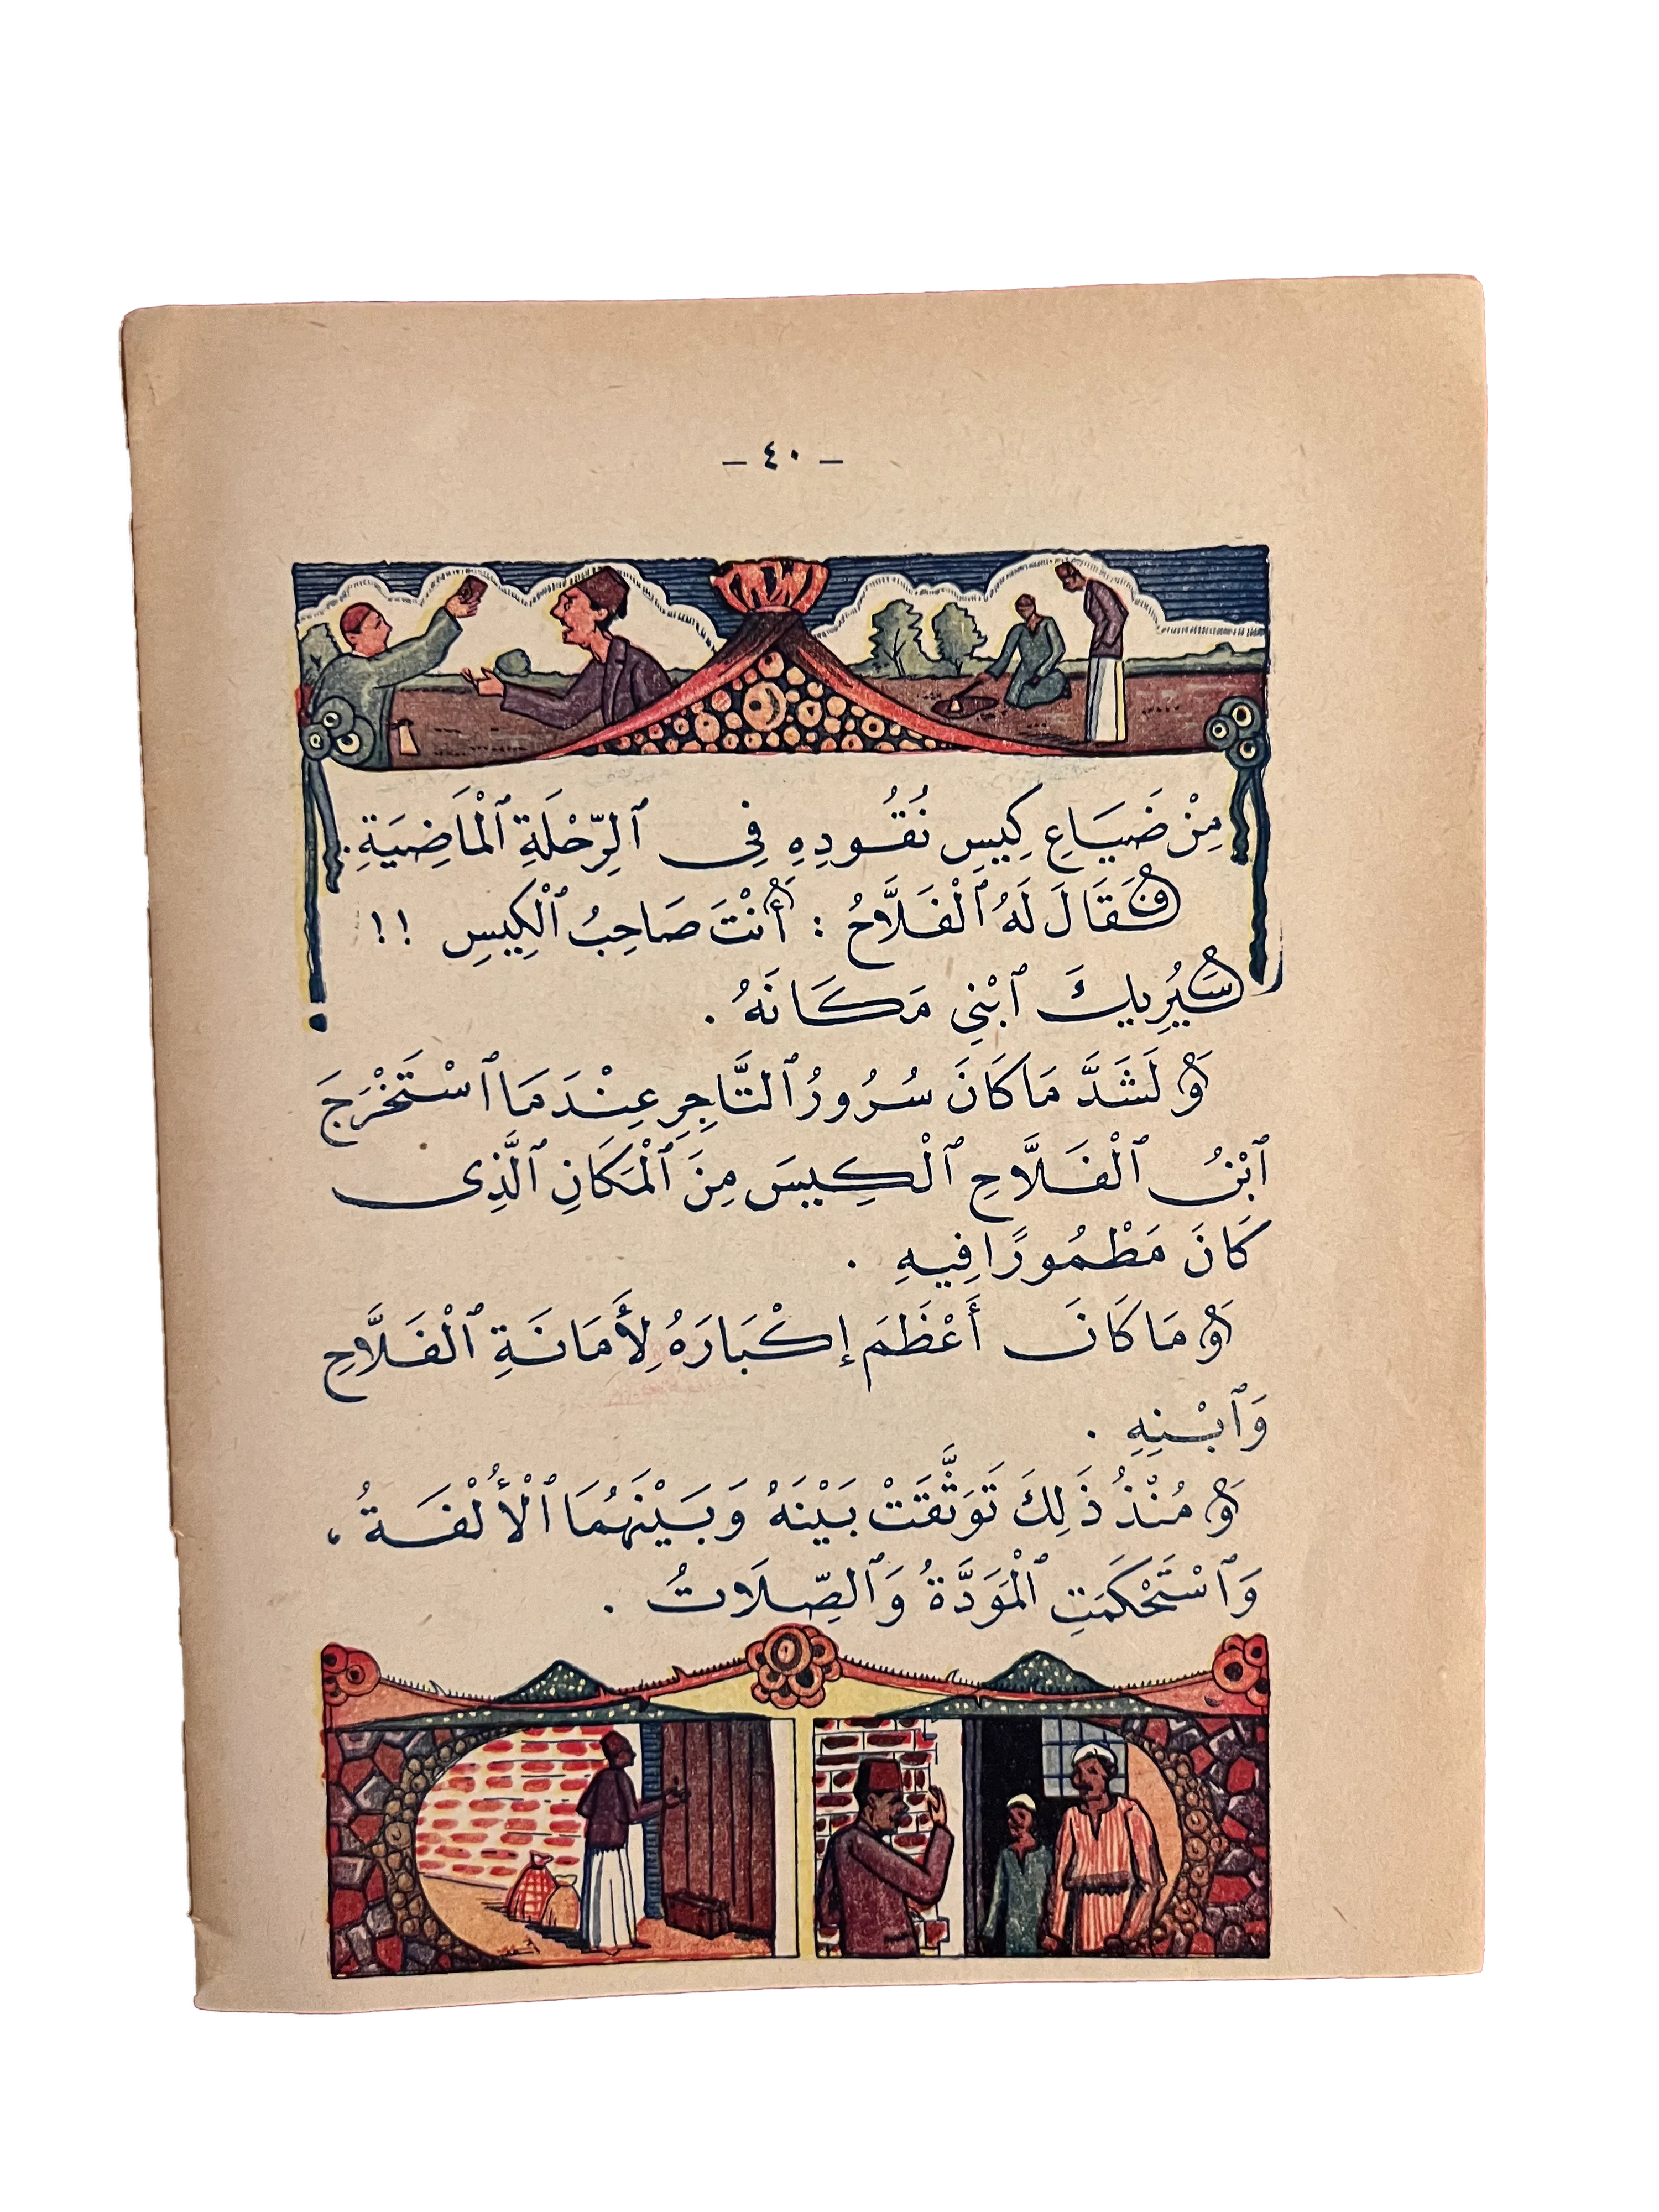 – ٤٠ –
مِنْ ضَيَاعِ كِيسِ نُقُودِهِ فِى ٱلرِّحْلَةِ ٱلْمَاضِيَةِ.
فَقَالَ لَهُ ٱلْفَلَّاحُ : أَنْتَ صَاحِبُ ٱلْكِيسِ !!
سَيُرِيكَ ٱبْنِي مَكَانَهُ .
وَلَشَدَّ مَا كَانَ سُرُورُ ٱلتَّاجِرِ عِنْدَمَا ٱسْتَخْرَجَ
ٱبْنُ ٱلْفَلَّاحِ ٱلْكِيسَ مِنَ ٱلْمَكَانِ ٱلَّذِى
كَانَ مَطْمُورًا فِيهِ .
وَمَا كَانَ أَعْظَمَ إِكْبَارَهُ لِأَمَانَةِ ٱلْفَلَّاحِ
وَٱبْنِهِ .
وَمُنْذُ ذَلِكَ تَوَثَّقَتْ بَيْنَهُ وَبَيْنَهُمَا ٱلْأُلْفَةُ ،
وَٱسْتَحْكَمَتِ ٱلْمَوَدَّةُ وَٱلصِّلَاتُ .